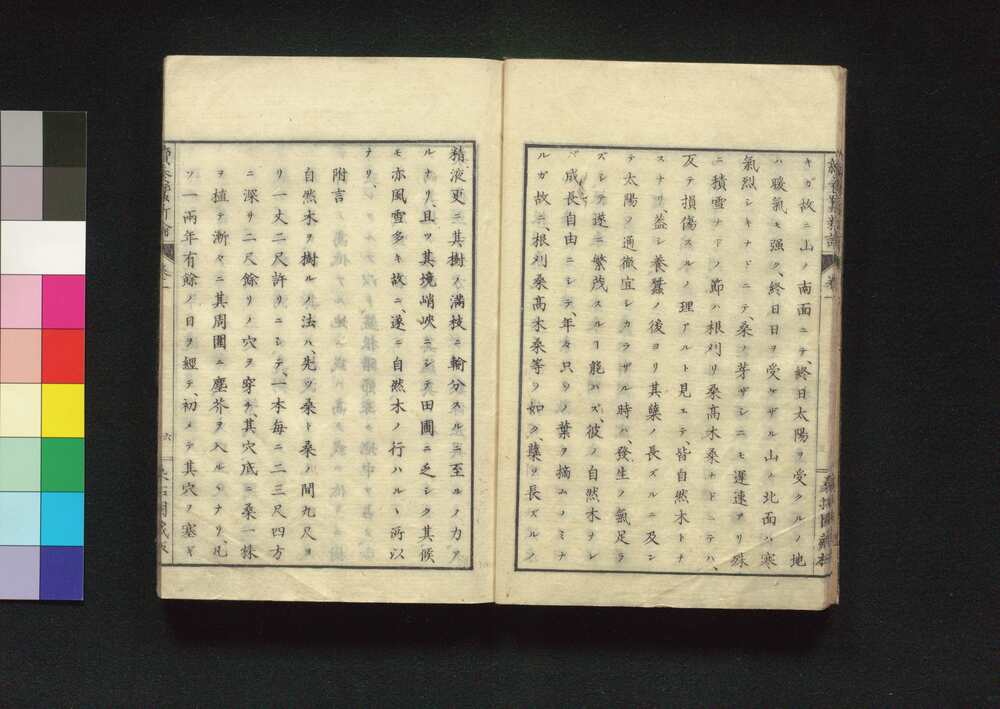 キガ故ニ山ノ南面ニテ、終日太陽ヲ受クルノ地
ハ暖氣モ强ク、終日日ヲ受ケザル山ト北面ハ寒
氣烈シキナドニテ、桑ノ芽ザシニモ遲速アリ殊
ニ積雪ナドノ節ハ根刈リ桑高木桑ナドニテハ、
反テ損傷スルノ理アルト見エテ、皆自然木トナ
スナリ、蓋シ養蠶ノ後ヨリ其蘖ノ長ズルニ及ン
テ太陽ノ通徹宜シカラザル時ハ、發生ノ氣足ラ
ズシテ遂ニ繁茂スルヿ能ハズ、彼ノ自然木ヲシ
バ成長自由ニシテ、年々只リノ葉ヲ摘ムノミナ
ルガ故ニ、根刈桑高木桑等ヲ如ク、蘖ヲ長ズルノ
精液更ニ其樹ノ滿枝ニ輸分スルニ至ルノ力ア
ルナリ、且ツ其境峭峽ニシテ田圃ニ乏シク其候
モ亦風雪多キ故ニ、遂ニ自然木ノ行ハルヽ所以
ナリ、
附言
自然木ヲ樹ルノ法ハ、先ヅ桑ト桑ノ間九尺ヨ
リ一丈二尺許リニシテ、一本每ニ二三尺四方
ニ深サ二尺餘リノ穴ヲ穿チ、其穴底ニ桑一株
ヲ植テ漸々ニ其周圍ニ塵芥ヲ入ルヽナリ、凡
ソ一兩年有餘ノ日ヲ經テ、初メテ其穴ヲ塞ギ
卷一
六